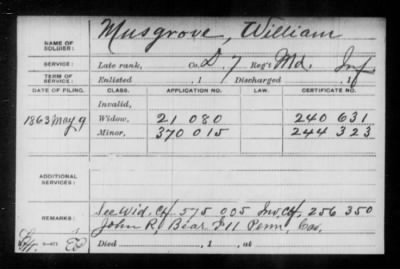 NAME OF SOLDIER: Musgrove, William
SERVICE: Late rank, Co. D, 7 Reg't Md. Inf
TERM OF SERVICE: Enlisted , 1 Discharged , 1
DATE OF FILING. CLASS. APPLICATION NO. LAW. CERTIFICATE NO.
Invalid,
1863 May 9 Widow, 21 080 240 631
Minor, 370 015 244 323
ADDITIONAL SERVICES:
REMARKS: See Wid. Cf. 575 005 Inv. Cf. 256 350
John R. Bear E 11 Penn. Cav.
Died , 1 , at